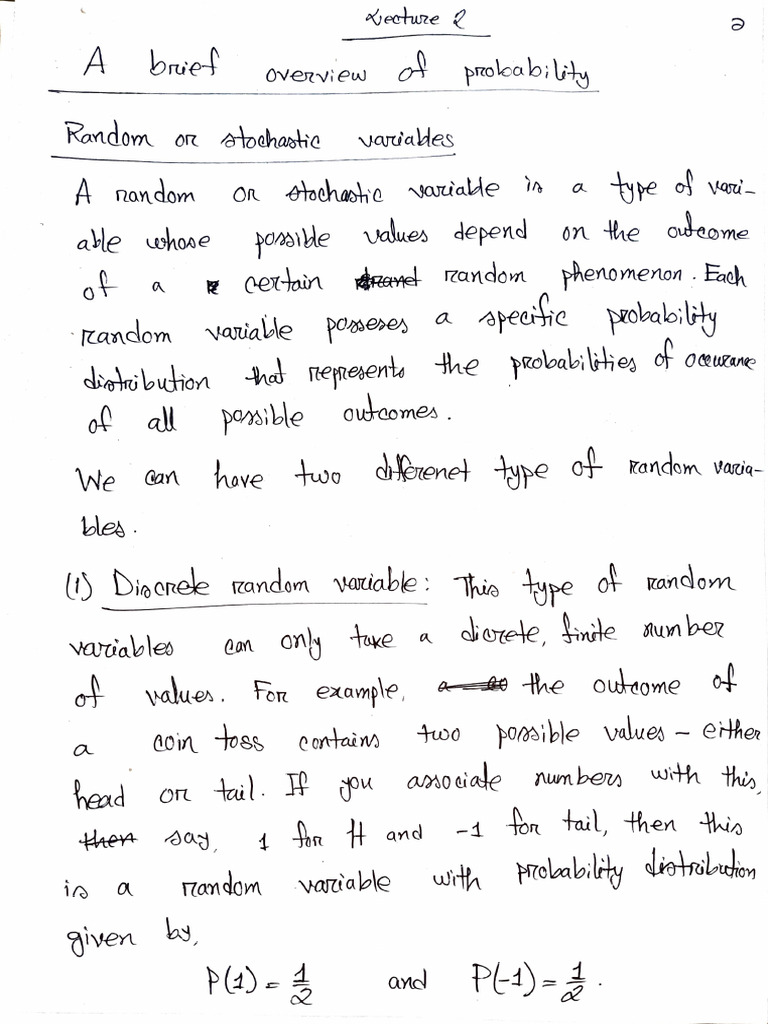 Lecture 2
2
A brief overview of probability
Random or stochastic variables
A random or stochastic variable is a type of vari-
able whose possible values depend on the outcome
of a certain random phenomenon. Each
random variable posseses a specific probability
distribution that represents the probabilities of occurance
of all possible outcomes.
We can have two differenet type of random varia-
bles.
(1) Discrete random variable: This type of random
variables can only take a dicrete, finite number
of values. For example, the outcome of
a coin toss contains two possible values – either
head or tail. If you associate numbers with this,
then say, 1 for H and -1 for tail, then this
is a random variable with probability distribution
given by,
P(1) = 1/2 and P(-1) = 1/2.